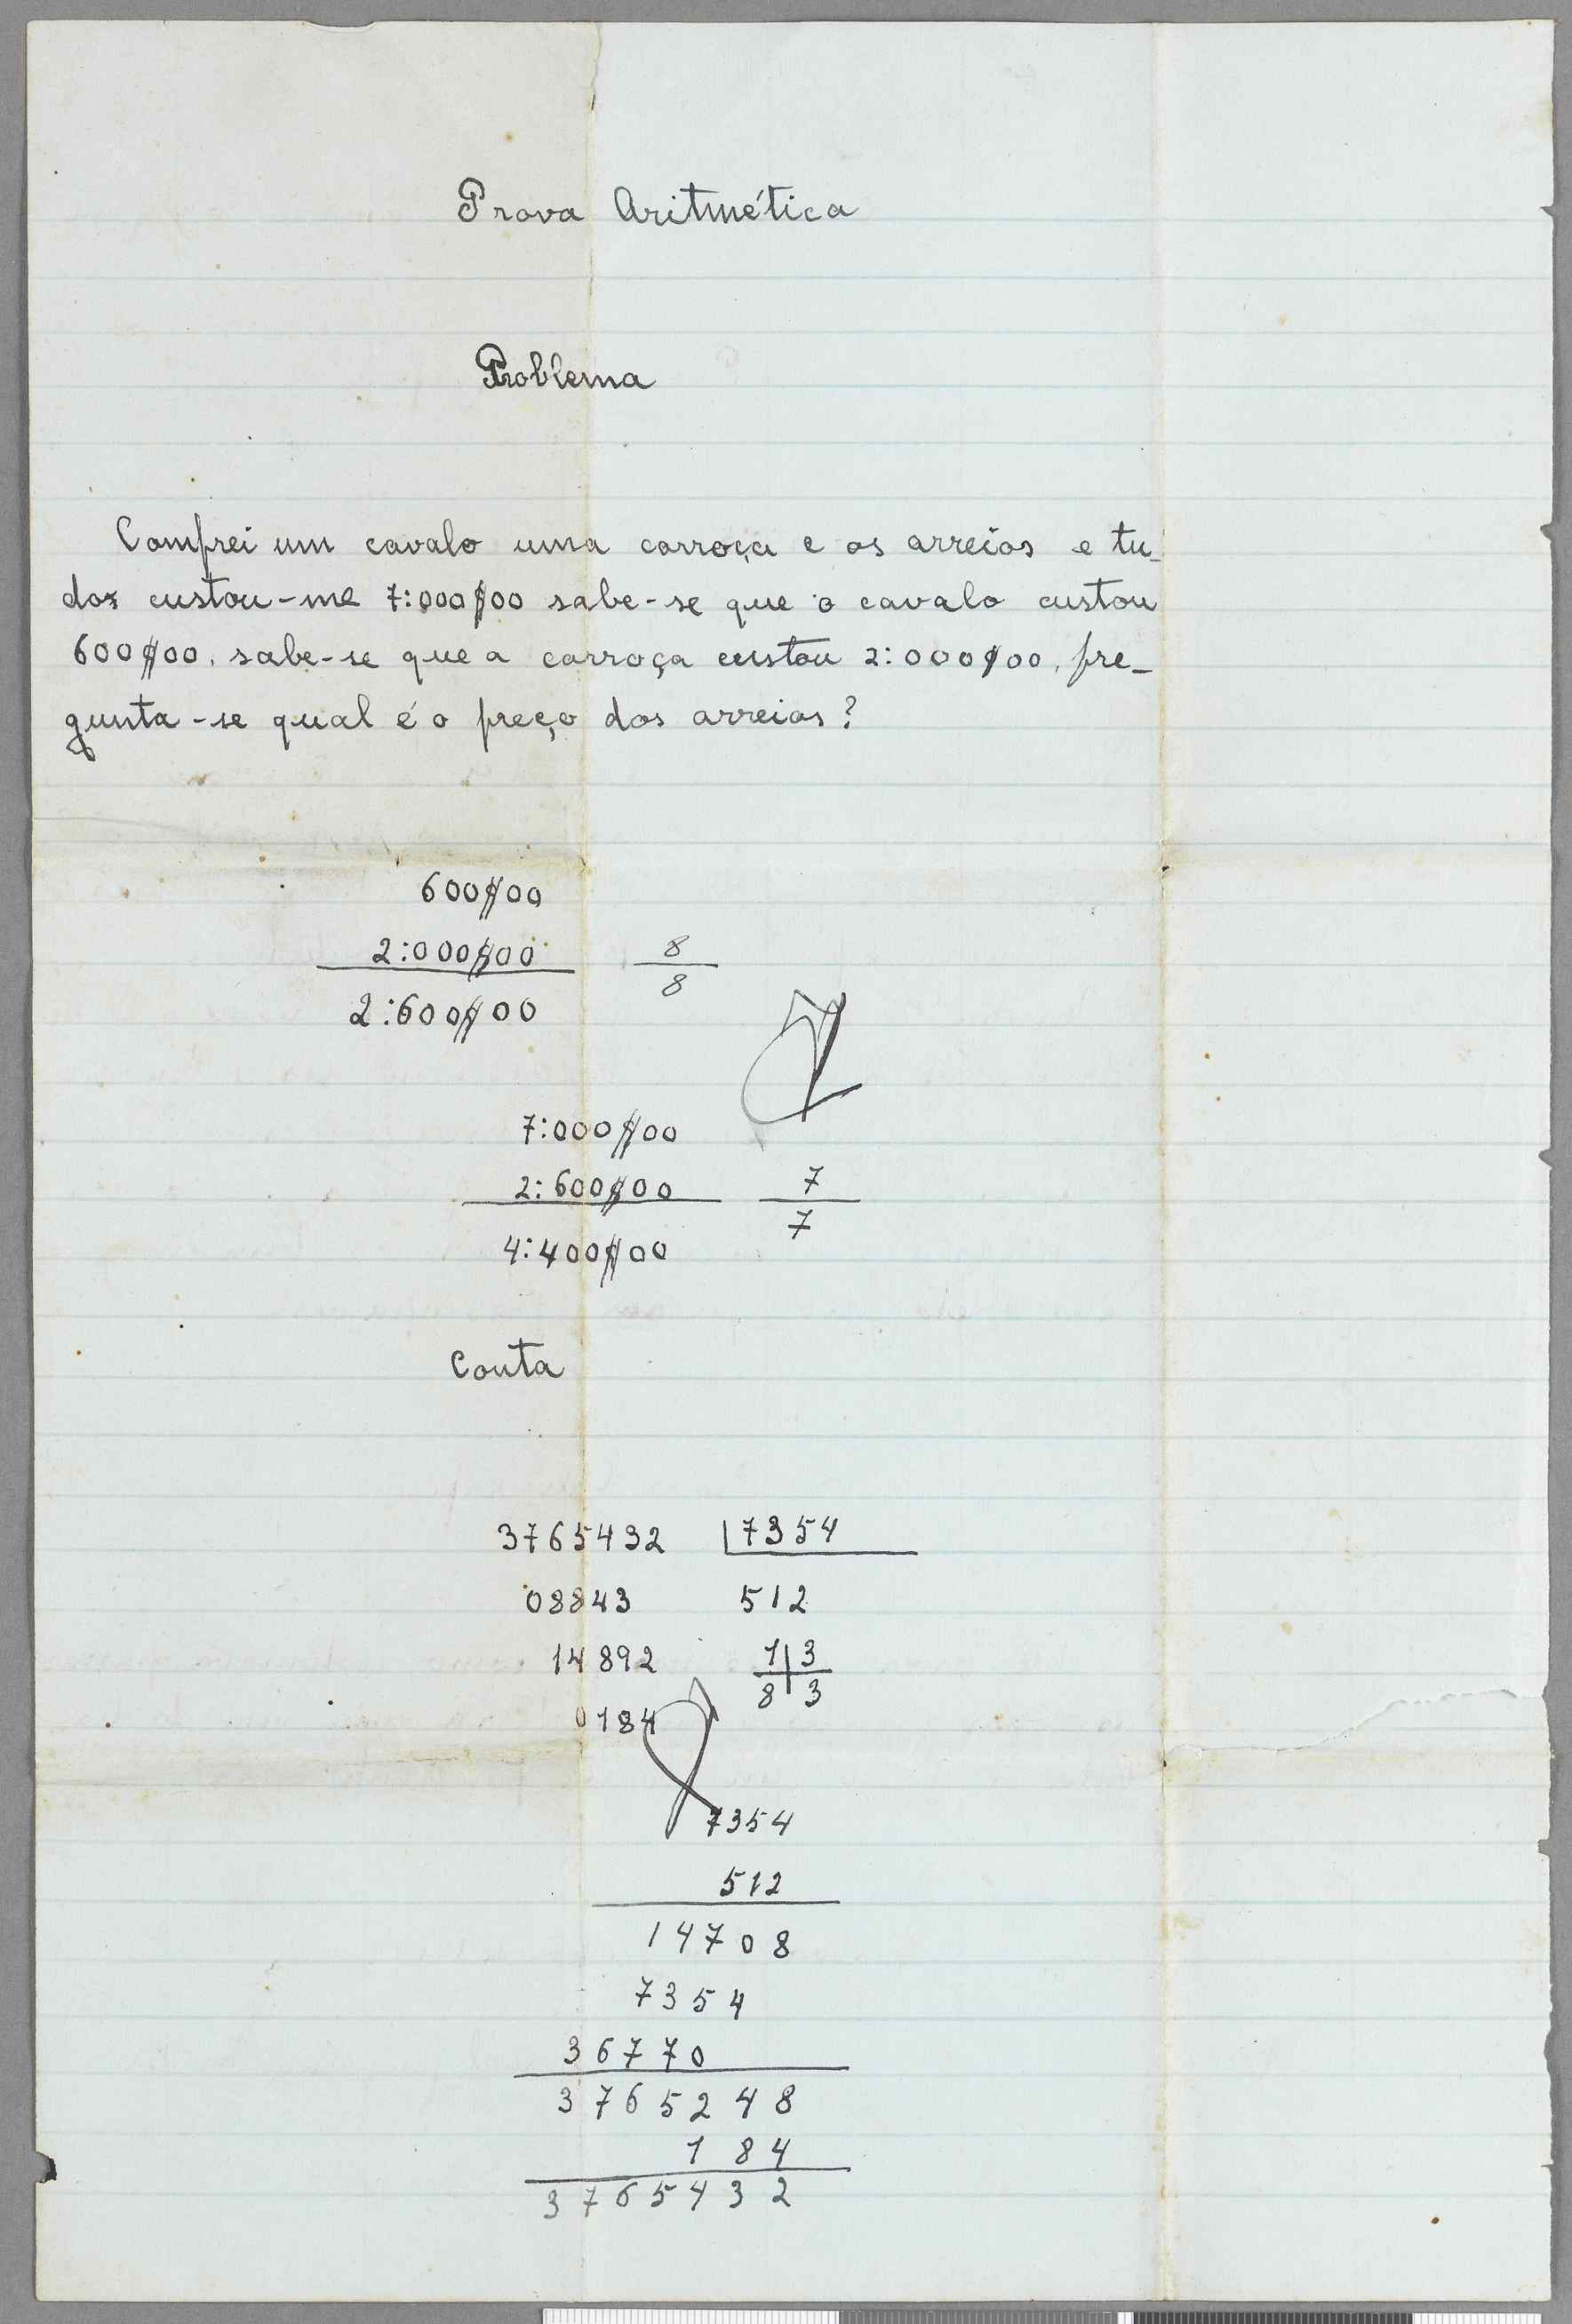 Prova Aritmética
Problema
Comprei um cavalo uma carroça e os arreios e tu-
dos custou-me 7:000$00 sabe-se que o cavalo custou
600$00, sabe-se que a carroça custou 2:000$00, pre-
gunta-se qual é o preço dos arreios?
600$00
2:000$00 8
2:600$00 8
7:000$00
2:600$00 7
4:400$00 7
Conta
3765432 7354
08843 512
14892 1 3
0184 8 3
7354
512
14708
7354
36770
3765248
184
3765432